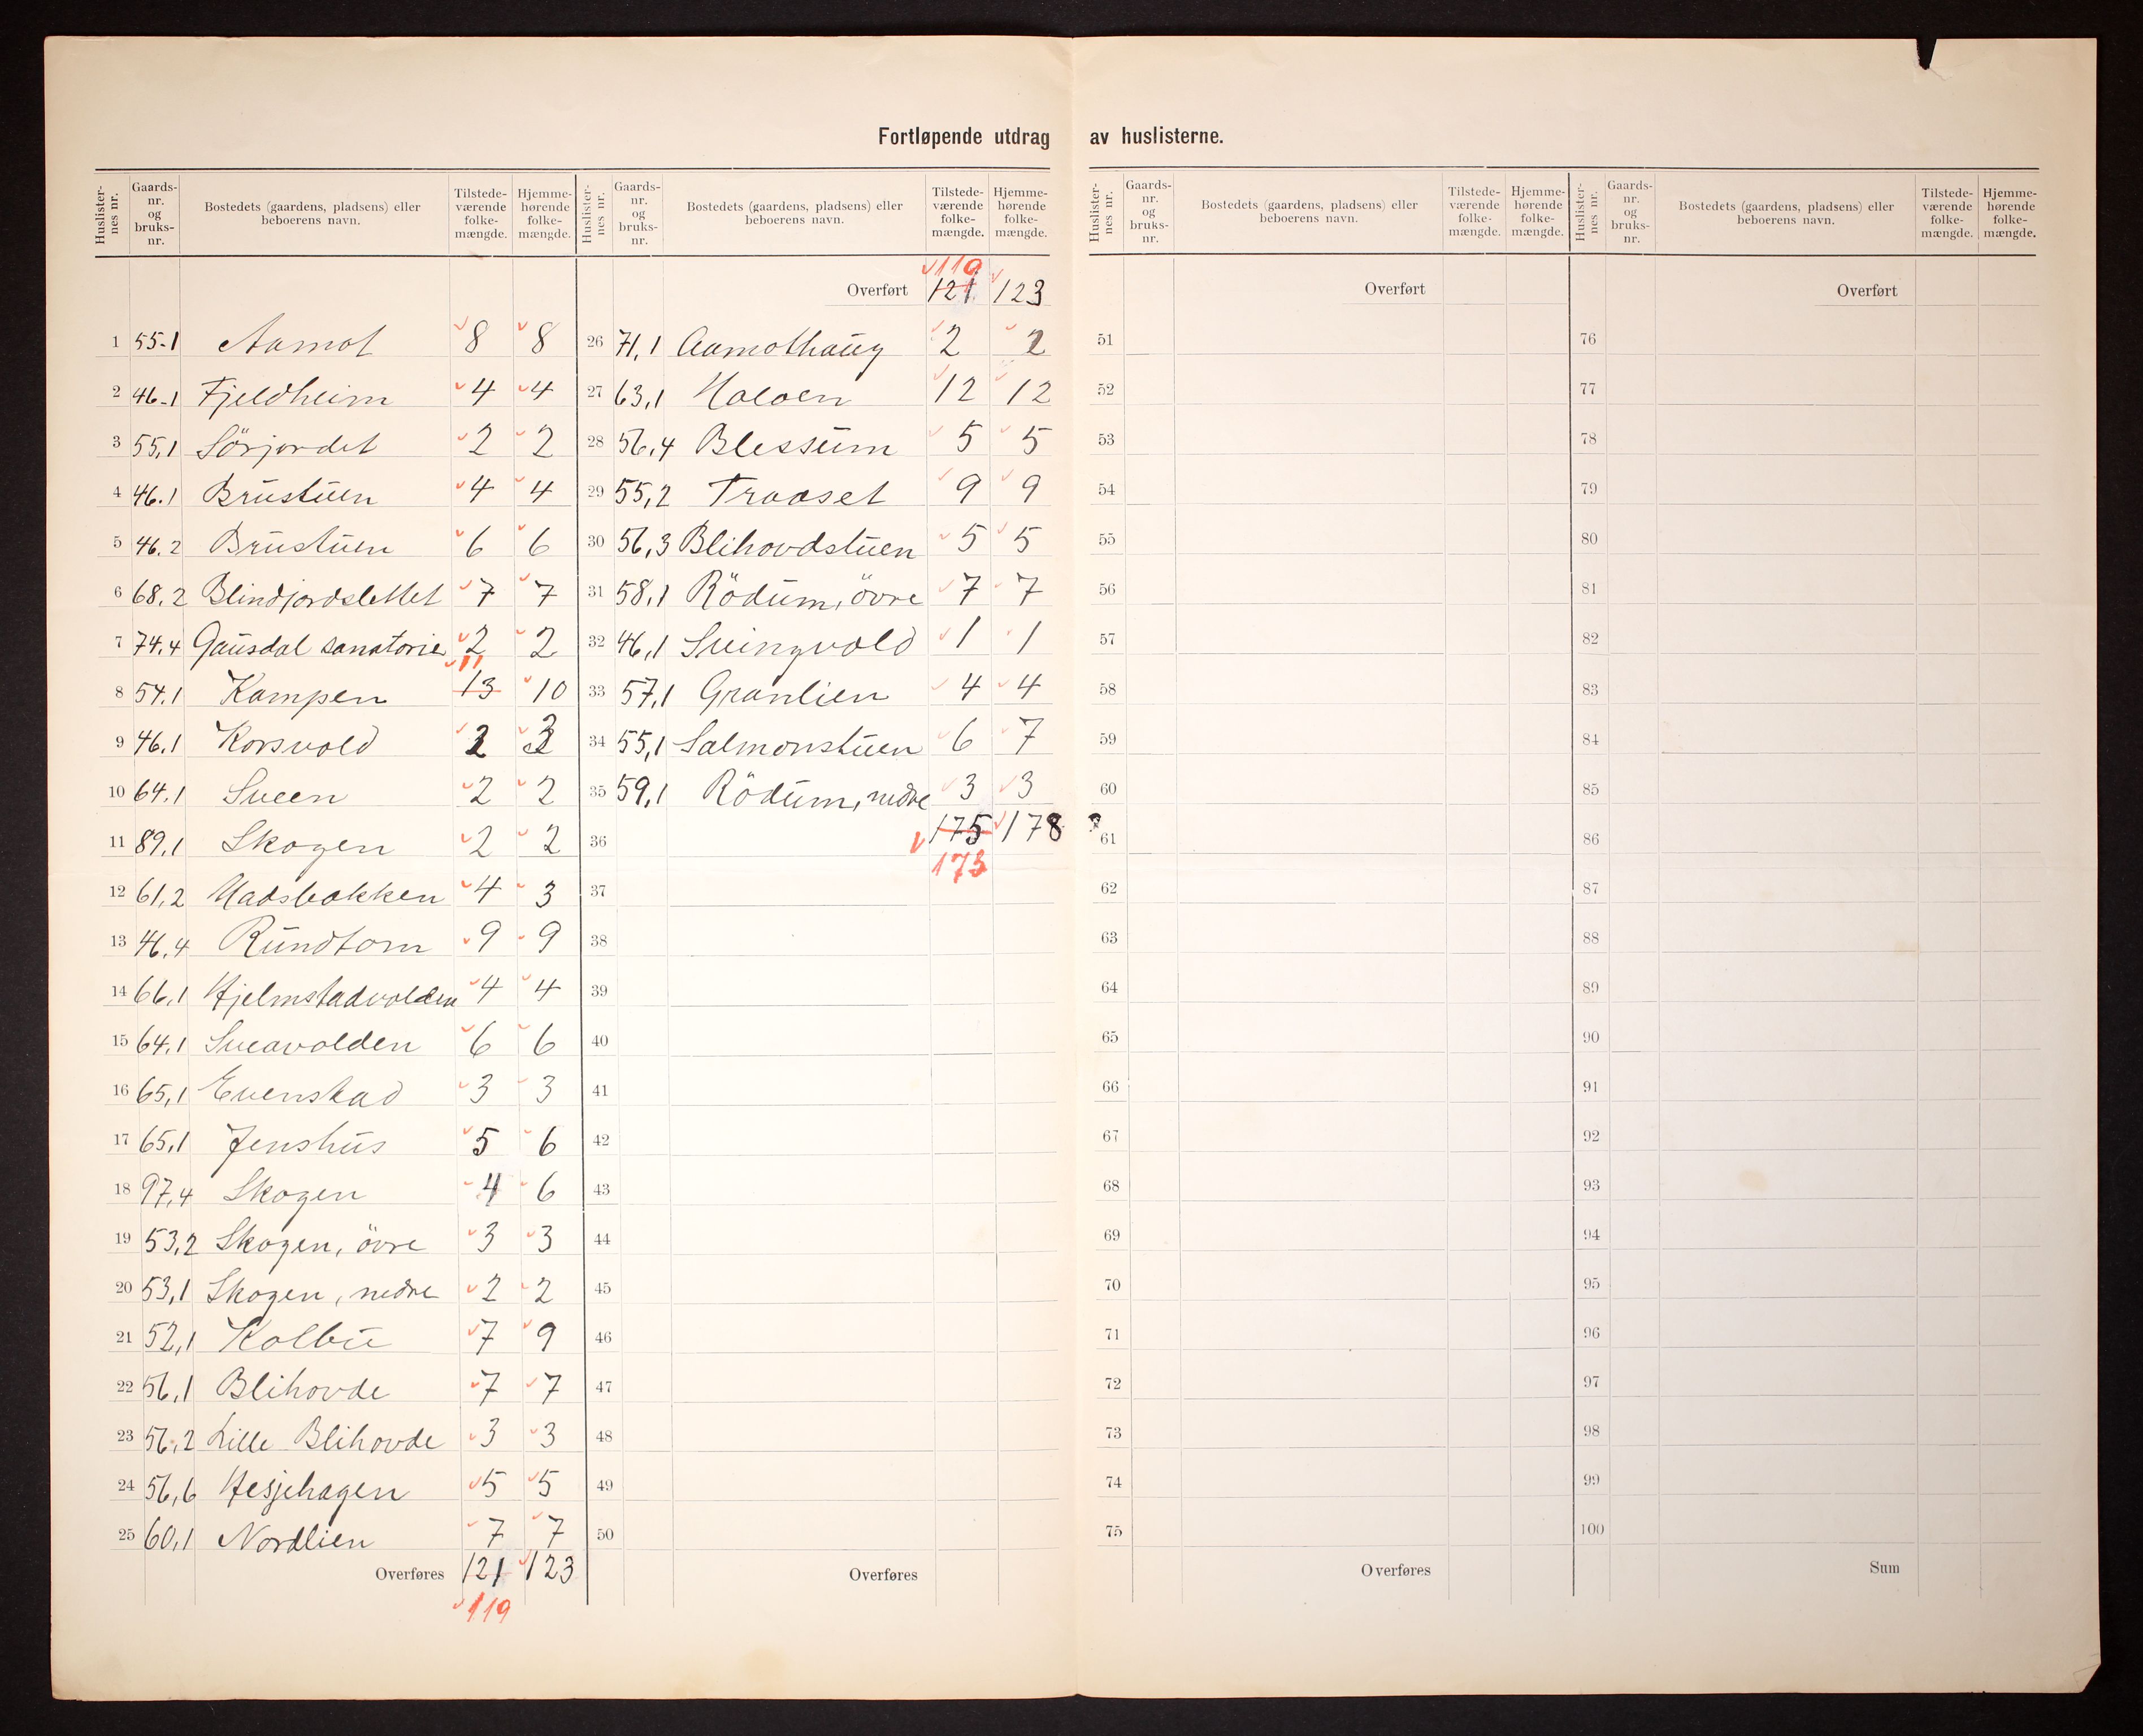 Fortløpende utdrag av huslisterne.
Huslisternes nr. Gaards-nr. og bruks-nr. Bostedets (gaardens, pladsens) eller beboerens navn. Tilstede-værende folke-mængde. Hjemme-hørende folke-mængde.
1 55-1 Aamot 8 8
2 46-1 Fjeldheim 4 4
3 55,1 Sörjordet 2 2
4 46.1 Brustuen 4 4
5 46.2 Brustuen 6 6
6 68.2 Blindjordslettet 7 7
7 74.4 Gausdal sanatorie 2 2
11
8 54.1 Kampen 13 10
9 46.1 Korsvold
10 64.1 Sveen 2 2
11 89,1 Skogen 2 2
12 61,2 Madsbakken 4 3
13 46.4 Rundtom 9 9
14 66,1 Hjelmstadvolden 4 4
15 64,1 Sveavolden 6 6
16 65,1 Evenstad 3 3
17 65,1 Jenshus 5 6
18 97,4 Skogen 4 6
19 53,2 Skogen, övre 3 3
20 53,1 Skogen, nedre 2 2
21 52,1 Kolbu 7 9
22 56,1 Blihovde 7 7
23 56,2 Lille Blihovde 3 3
24 56,6 Hesjehagen 5 5
25 60,1 Nordlien 7 7
Overføres 121 123
119
Huslisternes nr. Gaards-nr. og bruks-nr. Bostedets (gaardens, pladsens) eller beboerens navn. Tilstede-værende folke-mængde. Hjemme-hørende folke-mængde.
119
Overført 121 123
26 71,1 Aamothaug 2 2
27 63,1 Moloen 12 12
28 56,4 Blessum 5 5
29 55,2 Traaset 9 9
30 56,3 Blihovdstuen 5 5
31 58,1 Rödum, övre 7 7
32 46,1 Svingvold 1 1
33 57,1 Granlien 4 4
34 55,1 Salmonstuen 6 7
35 59,1 Rödum, nedre 3 3
36 175 178 ?
173
37
38
39
40
41
42
43
44
45
46
47
48
49
50
Overføres
Huslisternes nr. Gaards-nr. og bruks-nr. Bostedets (gaardens, pladsens) eller beboerens navn. Tilstede-værende folke-mængde. Hjemme-hørende folke-mængde.
Overført
51
52
53
54
55
56
57
58
59
60
61
62
63
64
65
66
67
68
69
70
71
72
73
74
75
Overføres
Huslisternes nr. Gaards-nr. og bruks-nr. Bostedets (gaardens, pladsens) eller beboerens navn. Tilstede-værende folke-mængde. Hjemme-hørende folke-mængde.
Overført
76
77
78
79
80
81
82
83
84
85
86
87
88
89
90
91
92
93
94
95
96
97
98
99
100
Sum